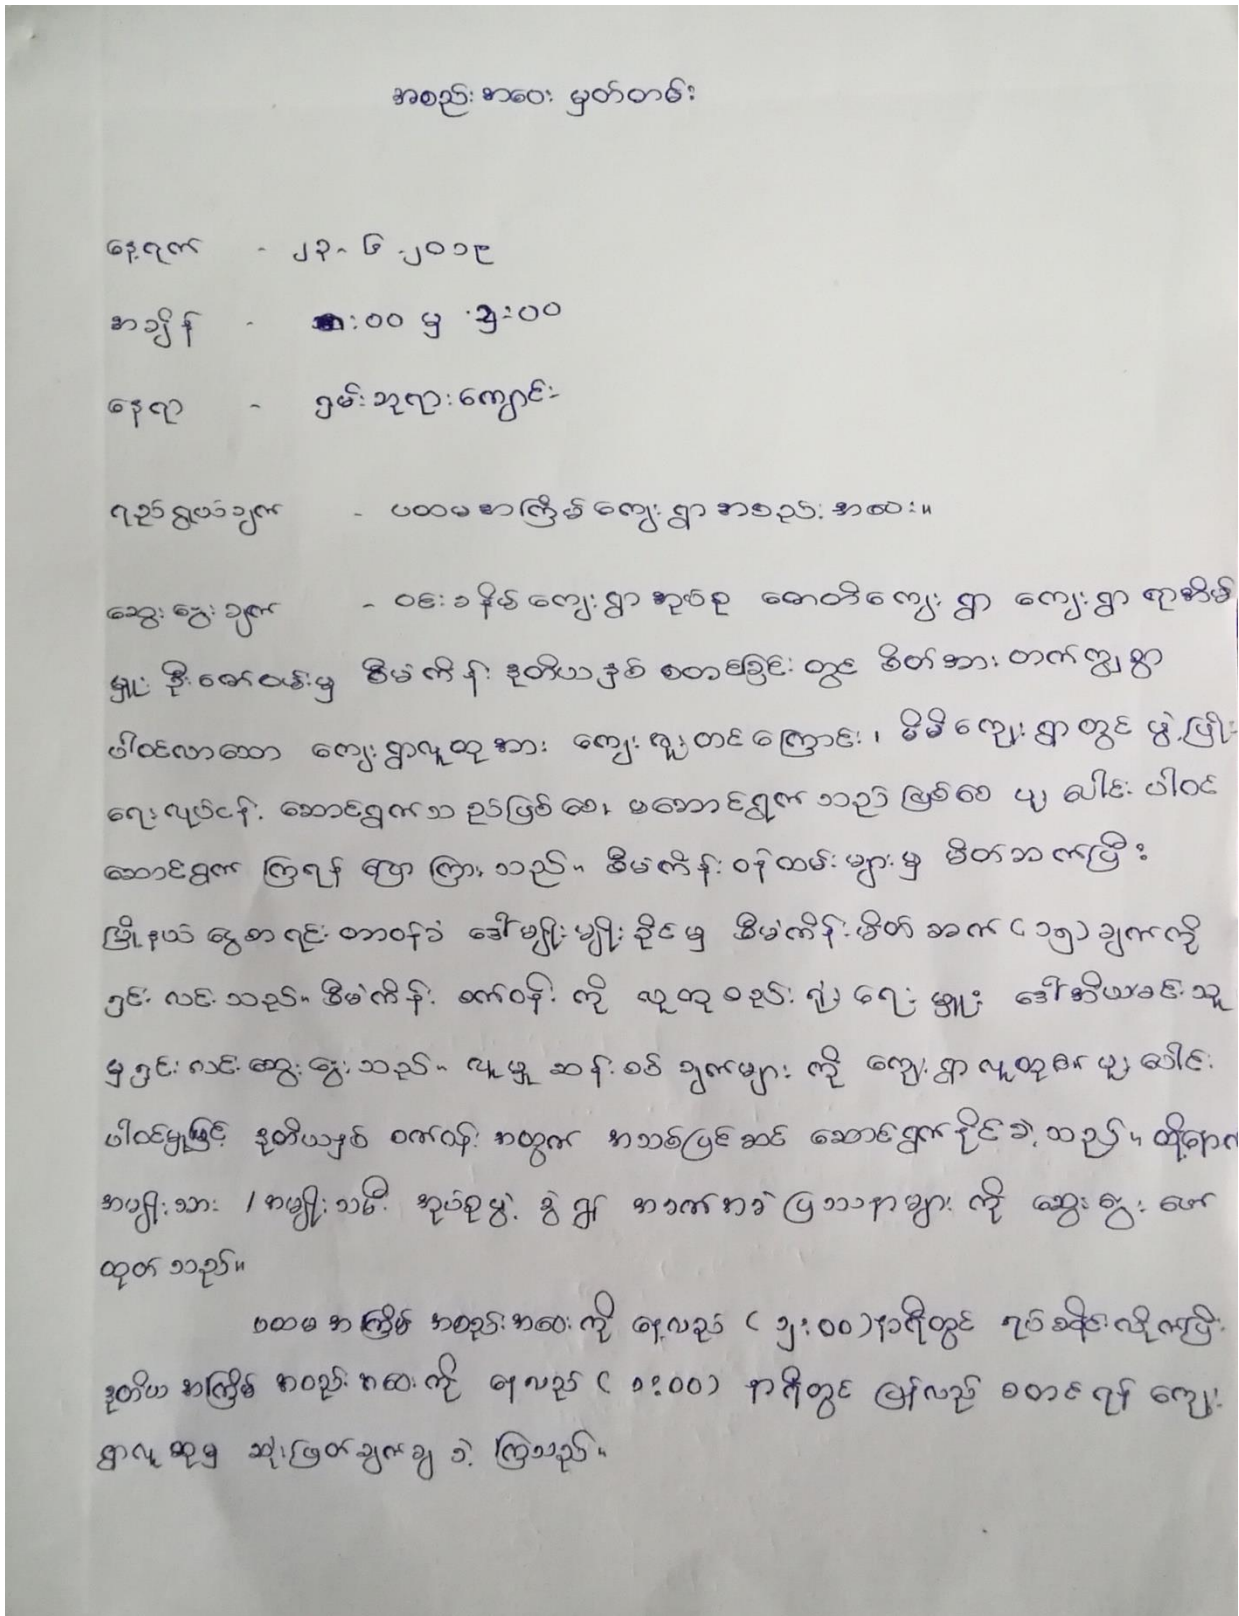 အစည်းအဝေး မှတ်တမ်း
နေ့ရက် - ၂၃-၆-၂၀၁၉
အချိန် - :၀၀ မှ ၁၂:၀၀
နေရာ - ရှမ်းဘုရားကျောင်း
ရည်ရွယ်ချက် - ပထမအကြိမ် ကျေးရွာ အစည်းအဝေး။
ဆွေးနွေးချက် - ဝင်းခနိမ် ကျေးရွာအုပ်စု ဇောတိကျေးရွာ ကျေးရွာ ရာအိမ်
မှူး ဦးဇော်ဝမ်းမှ စီမံကိန်း ဒုတိယနှစ် စတင်ခြင်း တွင် စိတ်အား တက်ကြွစွာ
ပါဝင်လာသော ကျေးရွာလူထုအား ကျေးဇူးတင်ကြောင်း၊ မိမိကျေးရွာတွင် ဖွံ့ဖြိုး
ရေးလုပ်ငန်း ဆောင်ရွက်သည်ဖြစ်စေ၊ မဆောင်ရွက်သည်ဖြစ်စေ ပူးပေါင်း ပါဝင်
ဆောင်ရွက် ကြရန် ပြောကြားသည်။ စီမံကိန်း ဝန်ထမ်းများမှ မိတ်ဆက်ပြီး
မြို့နယ် ငွေစာရင်း တာဝန်ခံ ဒေါ်မျိုးမျိုးခိုင်မှ စီမံကိန်းမိတ်ဆက် (၁၅) ချက်ကို
ရှင်းလင်းသည်။ စီမံကိန်း စက်ဝန်း ကို လူထုစည်းရုံးရေးမှူး ဒေါ်အိယခင်းသူ
မှ ရှင်းလင်းဆွေးနွေးသည်။ လူမှုဆန်းစစ်ချက်များ ကို ကျေးရွာလူထု၏ ပူးပေါင်း
ပါဝင်မှုဖြင့် ဒုတိယနှစ် စက်ဝန်း အတွက် အသစ်ပြင်ဆင် ဆောင်ရွက်နိုင်ခဲ့သည်။ ထို့နောက်
အမျိုးသား / အမျိုးသမီး အုပ်စုဖွဲ့ ခွဲ၍ အခက်အခဲ ပြဿနာများ ကို ဆွေးနွေး ဖော်
ထုတ်သည်။
ပထမအကြိမ် အစည်းအဝေးကို နေ့လည် (၁၂:၀၀) နာရီတွင် ရပ်ဆိုင်းလိုက်ပြီး
ဒုတိယအကြိမ် အစည်းအဝေးကို နေလည် (၁:၀၀) နာရီတွင် ပြန်လည် စတင်ရန် ကျေး
ရွာလူထုမှ ဆုံးဖြတ်ချက်ချ ခဲ့ကြသည်။